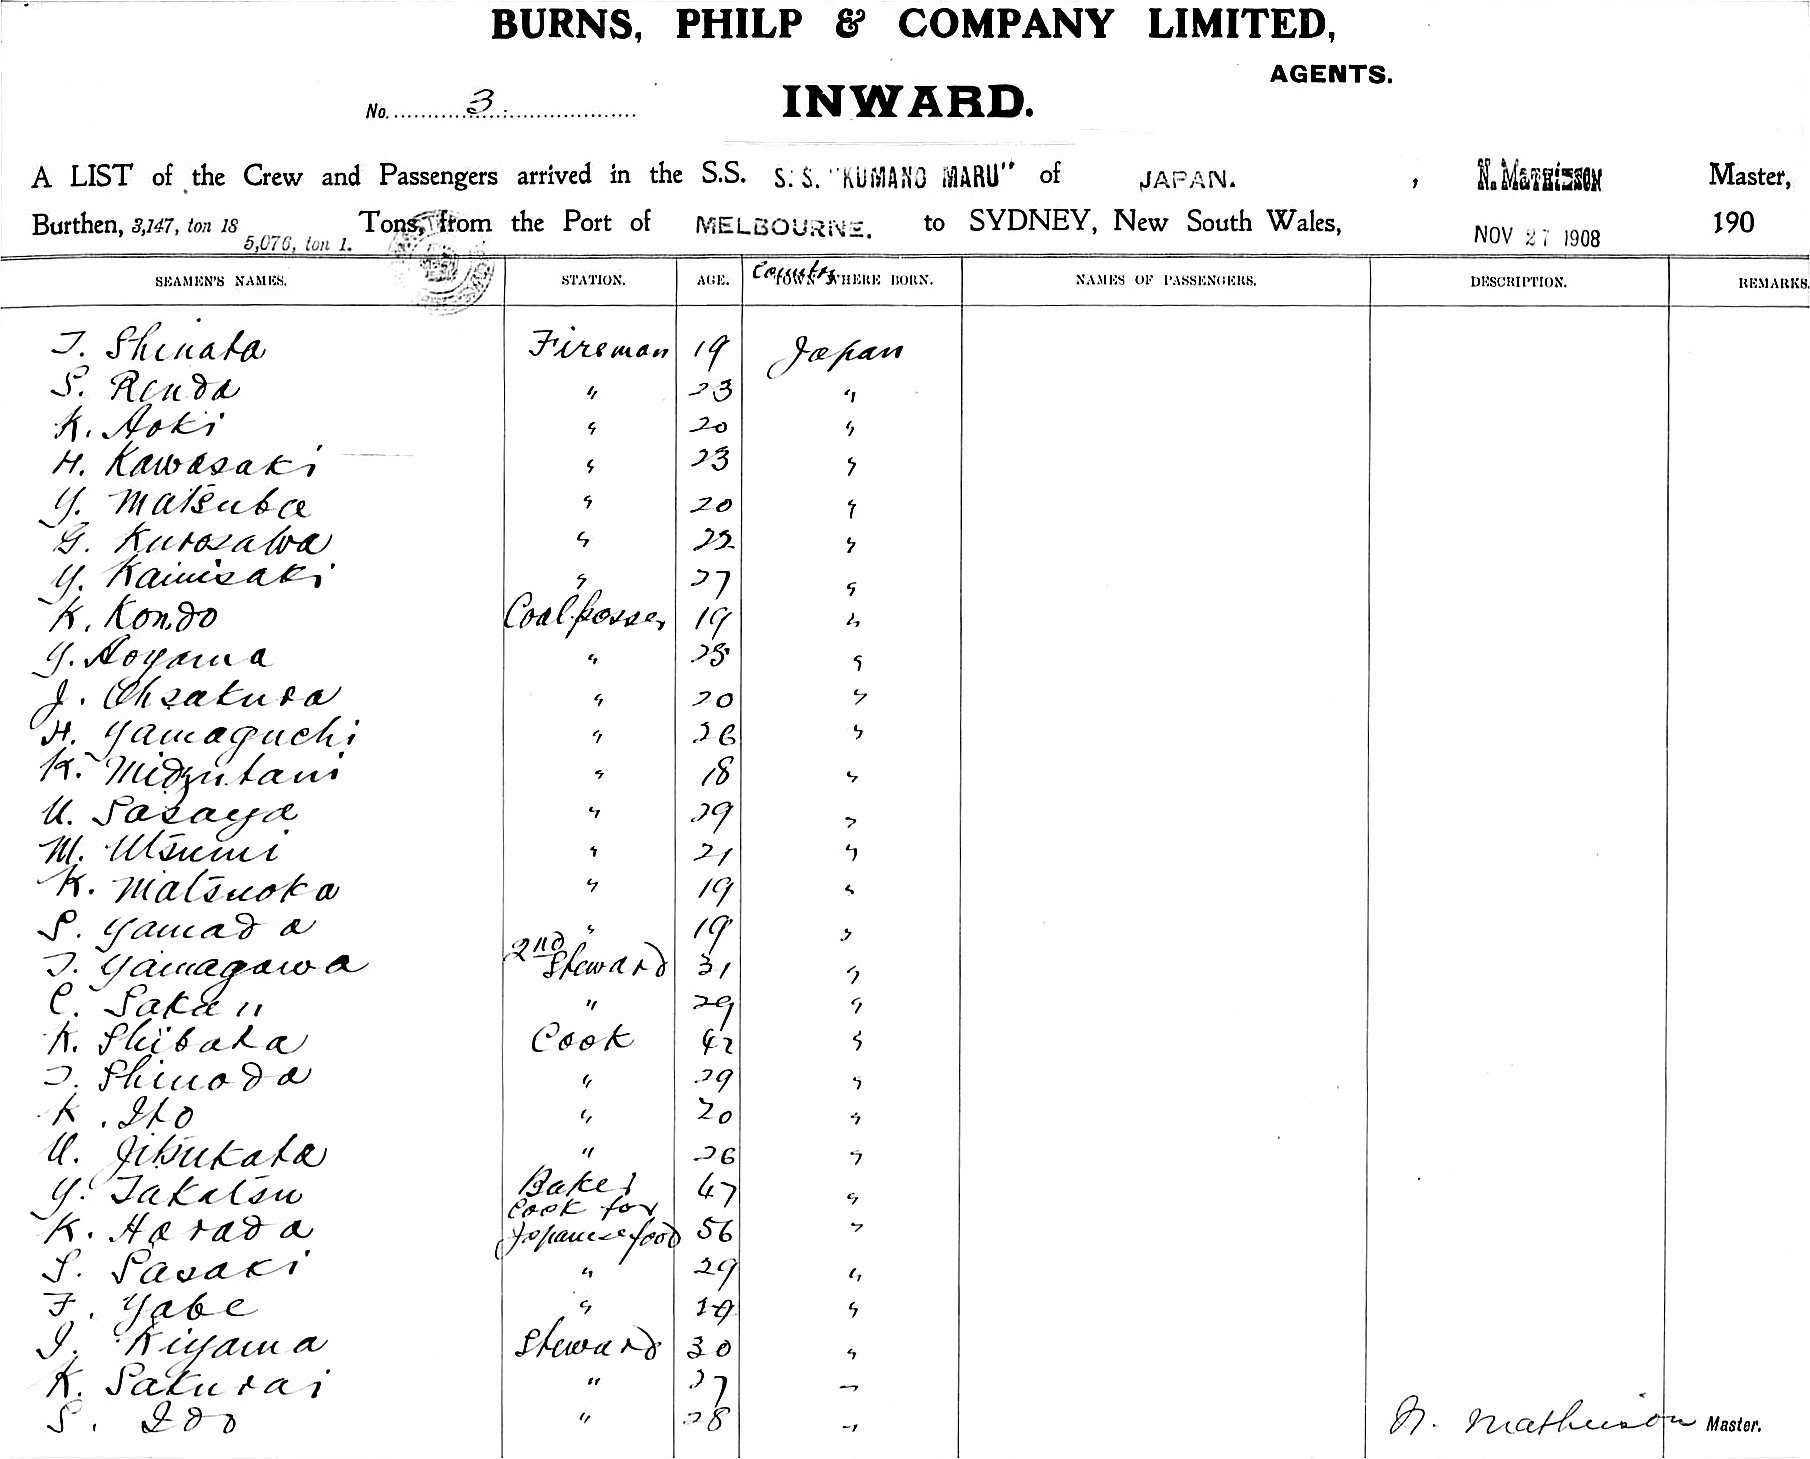 BURNS, PHILP & COMPANY LIMITED,
AGENTS.
No. 3. INWARD.
A LIST of the Crew and Passengers arrived in the S.S. S.S. "KUMANO MARU" of JAPAN. , N. MATHIESON Master,
Burthen, 3,147, ton 18 Tons, from the Port of MELBOURNE. to SYDNEY, New South Wales, NOV 27 1908 190
5,076, ton 1.
SEAMEN'S NAMES. STATION. AGE. Country TOWN WHERE BORN. NAMES OF PASSENGERS. DESCRIPTION. REMARKS.
T. Shinata Fireman 19 Japan
S. Renda " 23 "
K. Aoki " 20 "
H. Kawasaki " 23 "
Y. Matsuba " 20 "
G. Kurosawa " 22 "
Y. Kamisaki " 27 "
K. Kondo Coal passer 19 "
Y. Aoyama " 25 "
J. Ohsakura " 20 "
H. Yamaguchi " 26 "
K. Midzutani " 18 "
U. Sasaya " 29 "
M. Utsumi " 21 "
K. Matsuoka " 19 "
S. Yamada " 19 "
T. Yamagawa 2nd Steward 31 "
C. Sakaii " 29 "
K. Shibata Cook 42 "
T. Shinoda " 29 "
K. Ito " 20 "
U. Jitsukata " 26 "
Y. Takatsu Baker 47 "
K. Harada Cook for Japanese food 56 "
S. Sasaki " 29 "
F. Yabe " 19 "
I. Kiyama Steward 30 "
K. Sakurai " 27 "
S. Ido " 28 "
N. Mathieson Master.